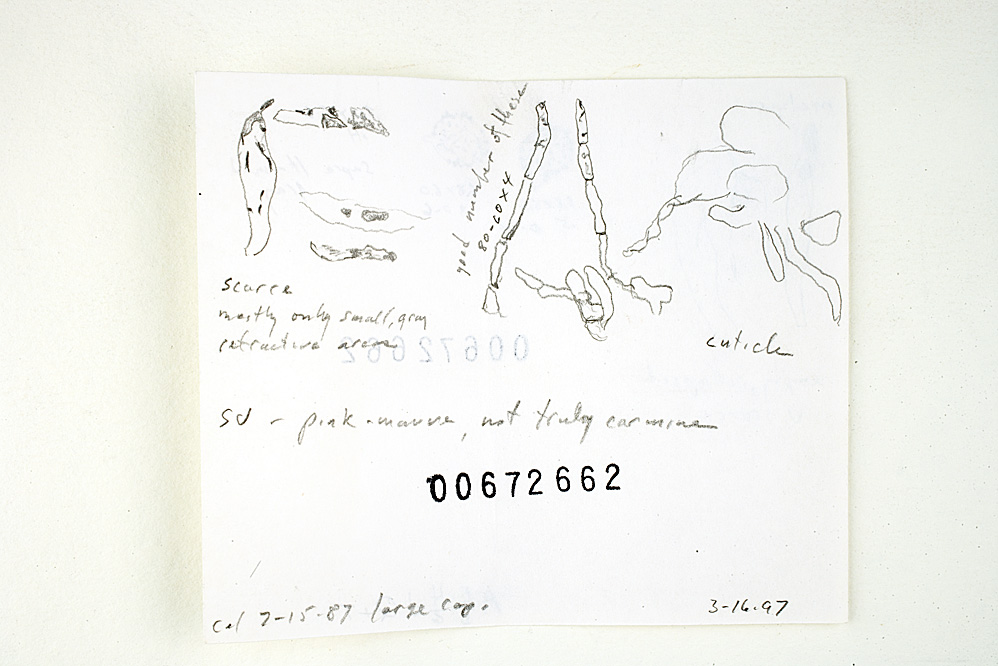 good number of these
80-60x4
scarce
mostly only small, gray
refractive areas
cuticle
SV - pink-mauve, not truly carmine
00672662
Col 7-15-87 large cap.
3-16-97